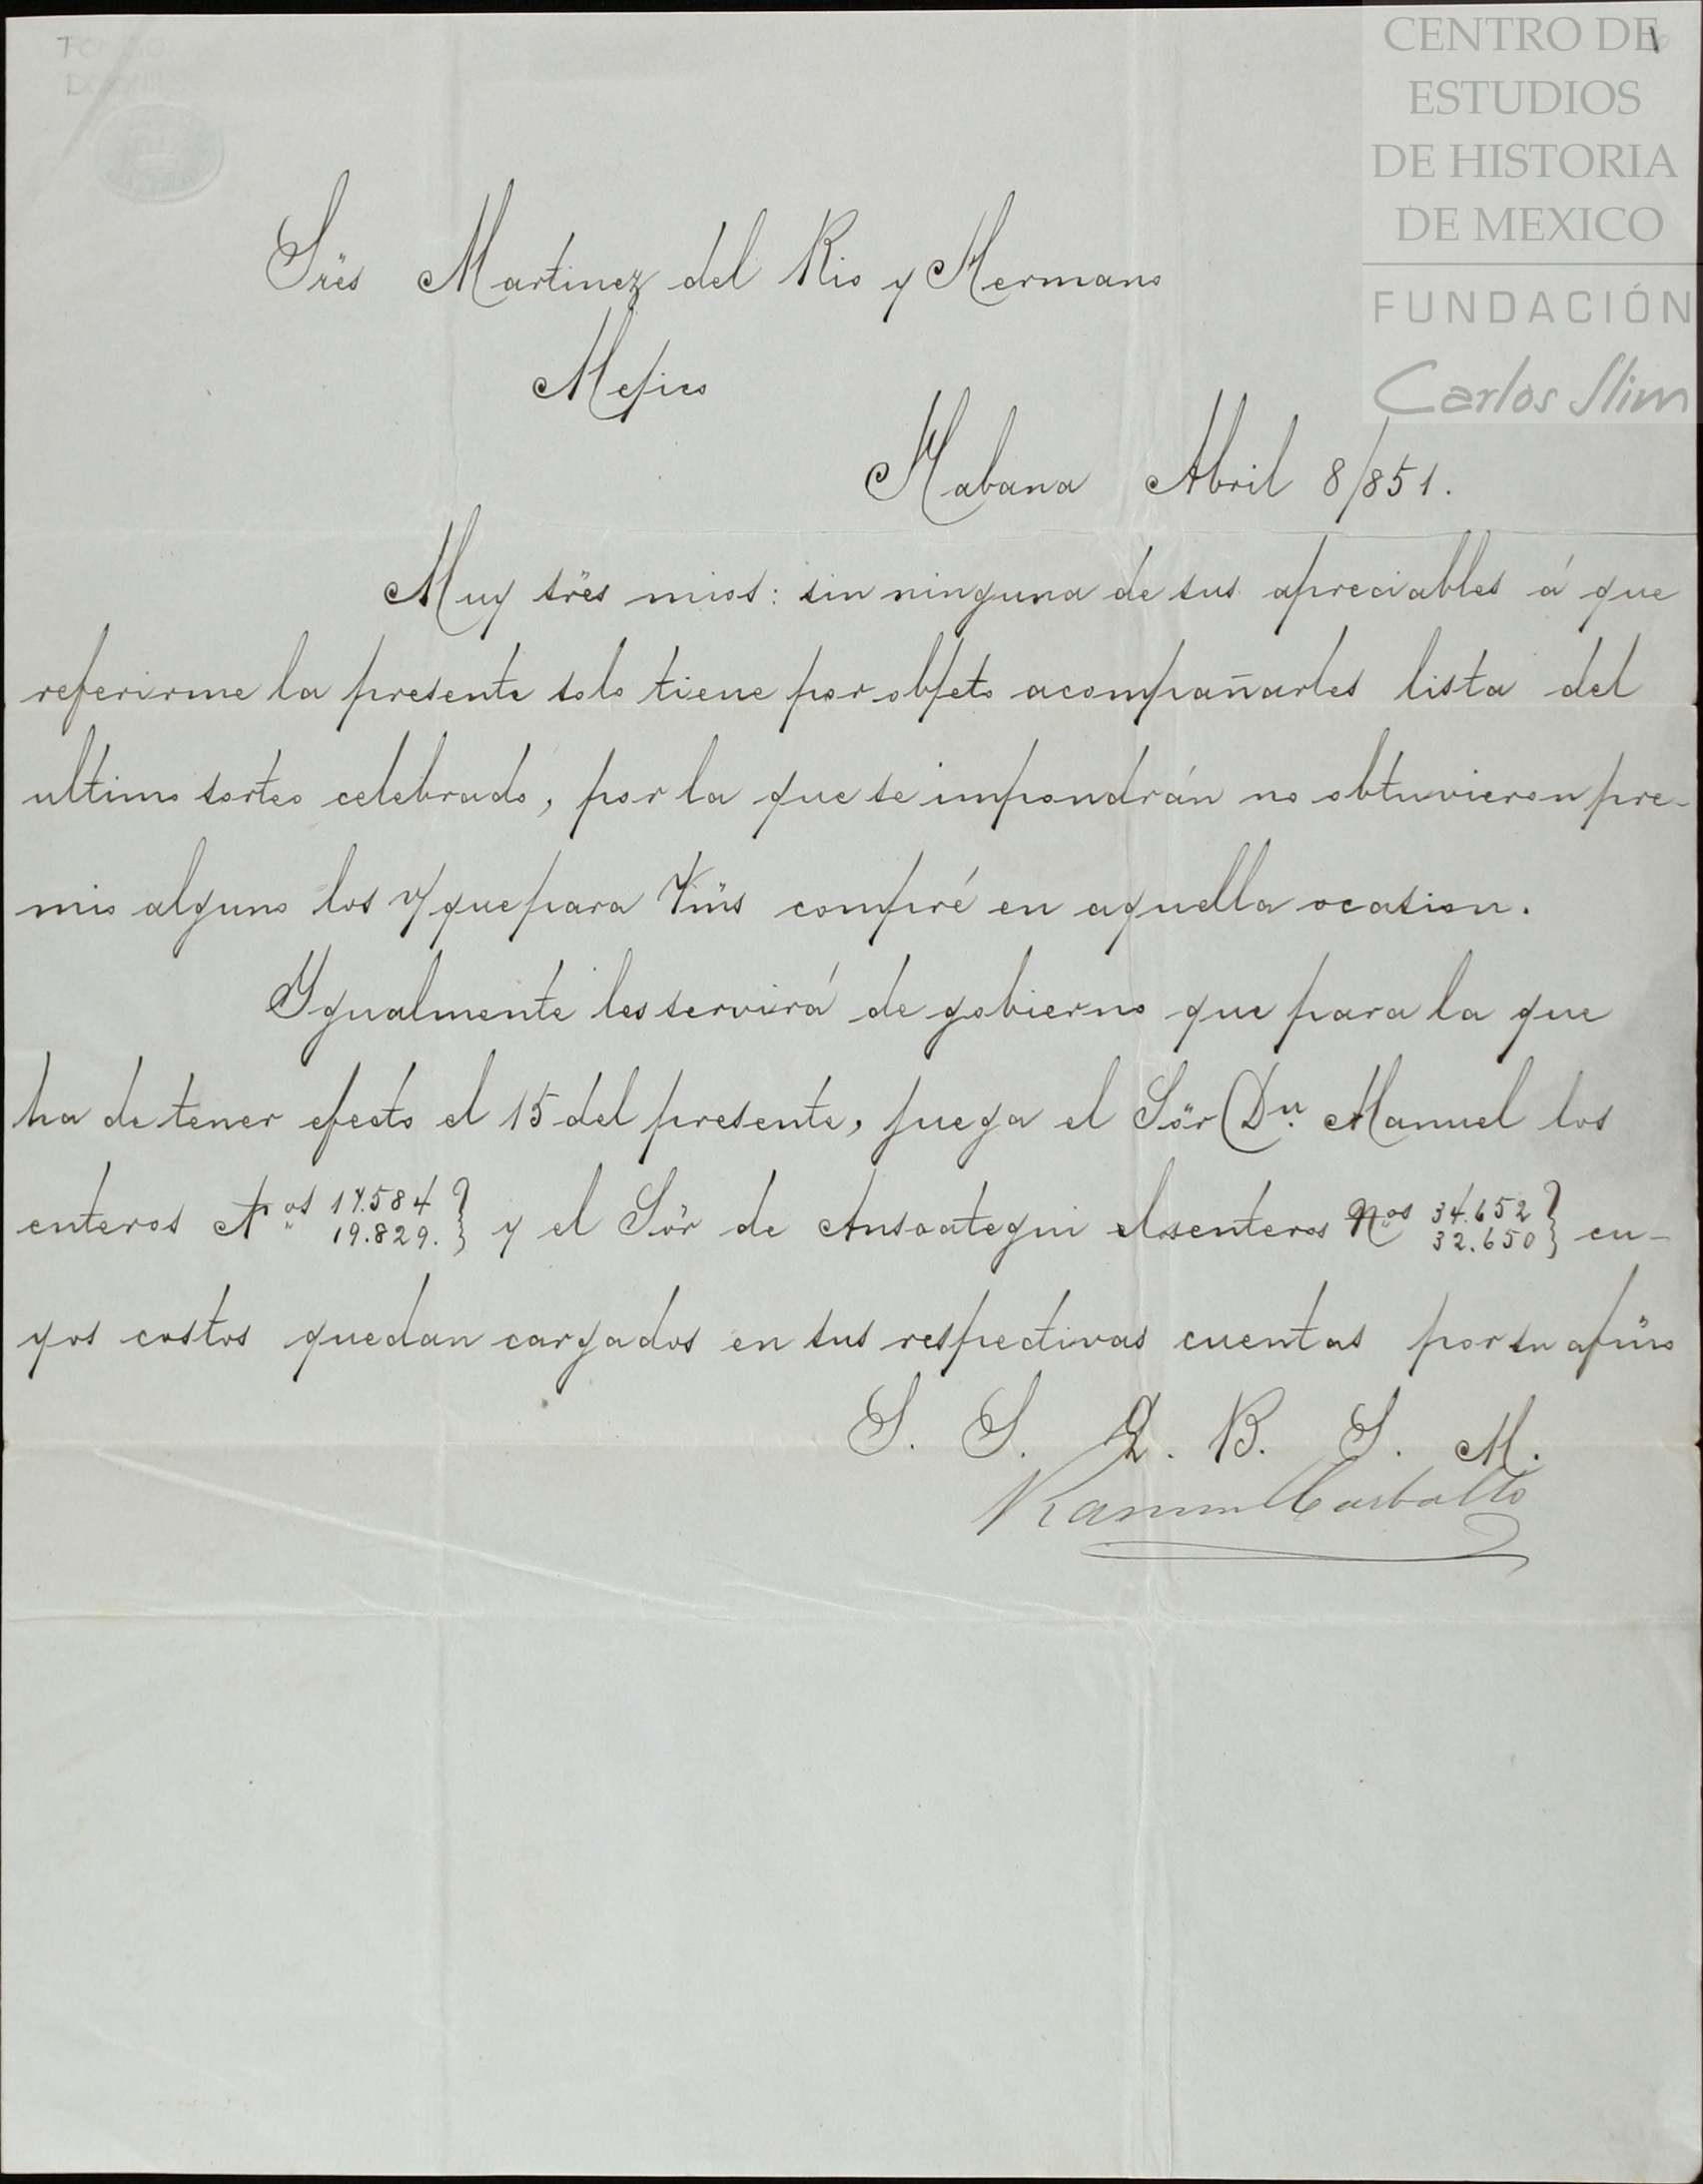 CENTRO DE
ESTUDIOS
DE HISTORIA
DE MEXICO
FUNDACIÓN
Carlos Slim
Sres Martinez del Rio y Hermano
Mejico
Habana Abril 8/851.
Muy sres mios: sin ninguna de sus apreciables á que
referirme la presente solo tiene por objeto acompañarles lista del
ultimo sorteo celebrado, por la que se impondrán no obtuvieron pre-
mio alguno los que para Vms compré en aquella ocasion.
Ygualmente les servirá de gobierno que para la que
ha de tener efecto el 15 del presente, juega el Sör Dn. Manuel los
enteros Nos 17.584 } y el Sör de Ansoategui los enteros Nos 34.652 } cu-
19.829. 32.650
yos costos quedan cargados en sus respectivas cuentas por su afmo
S. S. Q. B. S. M.
Ramon Carballo